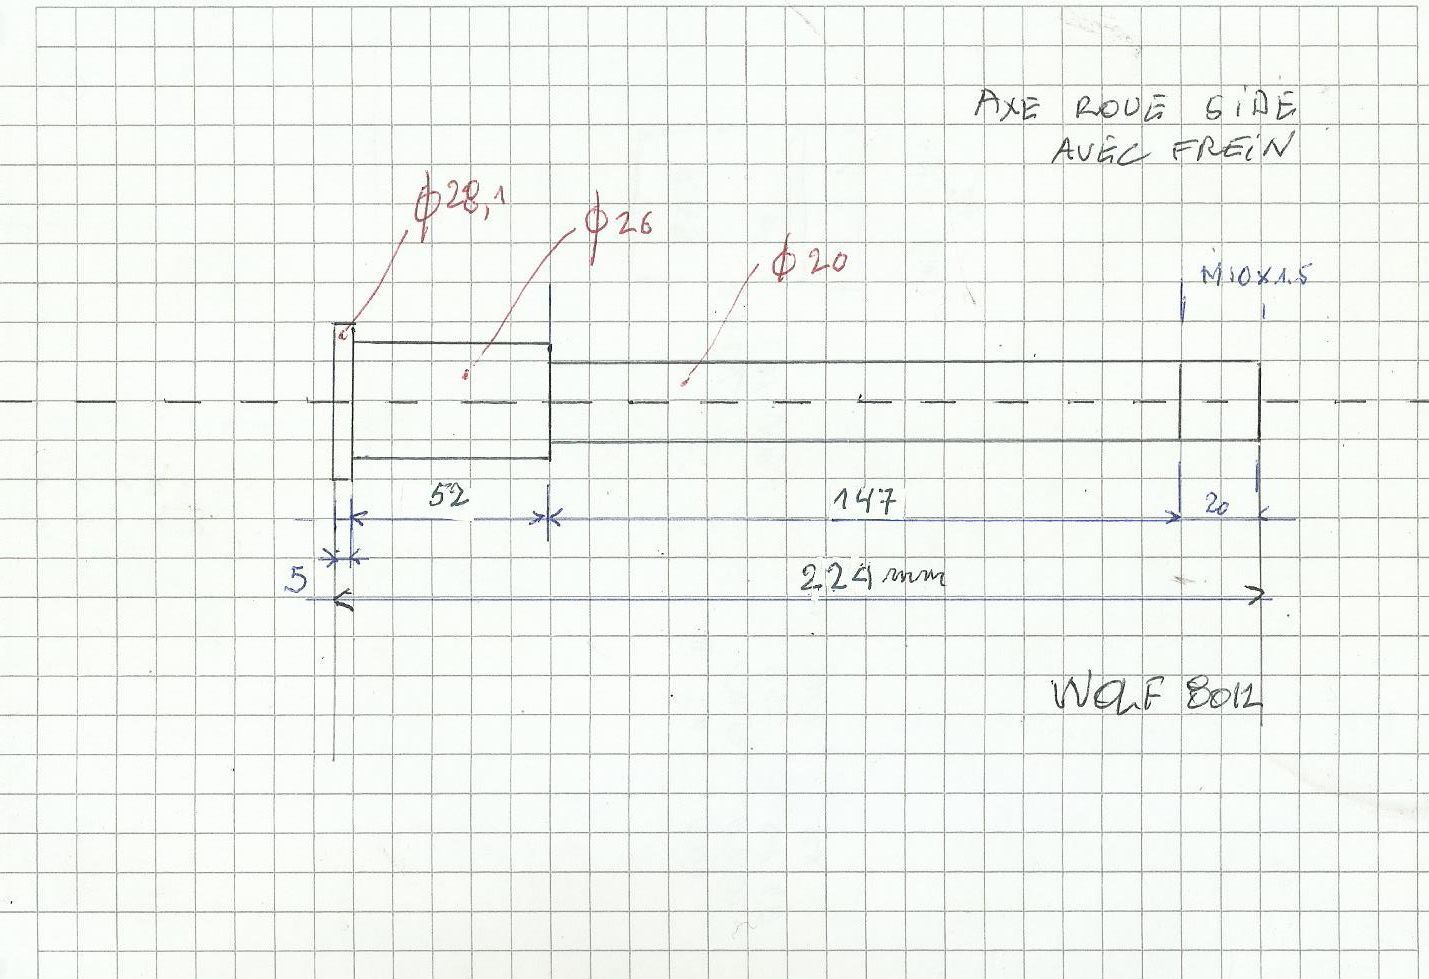 AXE ROUE SIDE
AVEC FREIN
ϕ28,1
ϕ26
ϕ20
M10x1.5
52
147
20
5
224mm
WOLF 8012